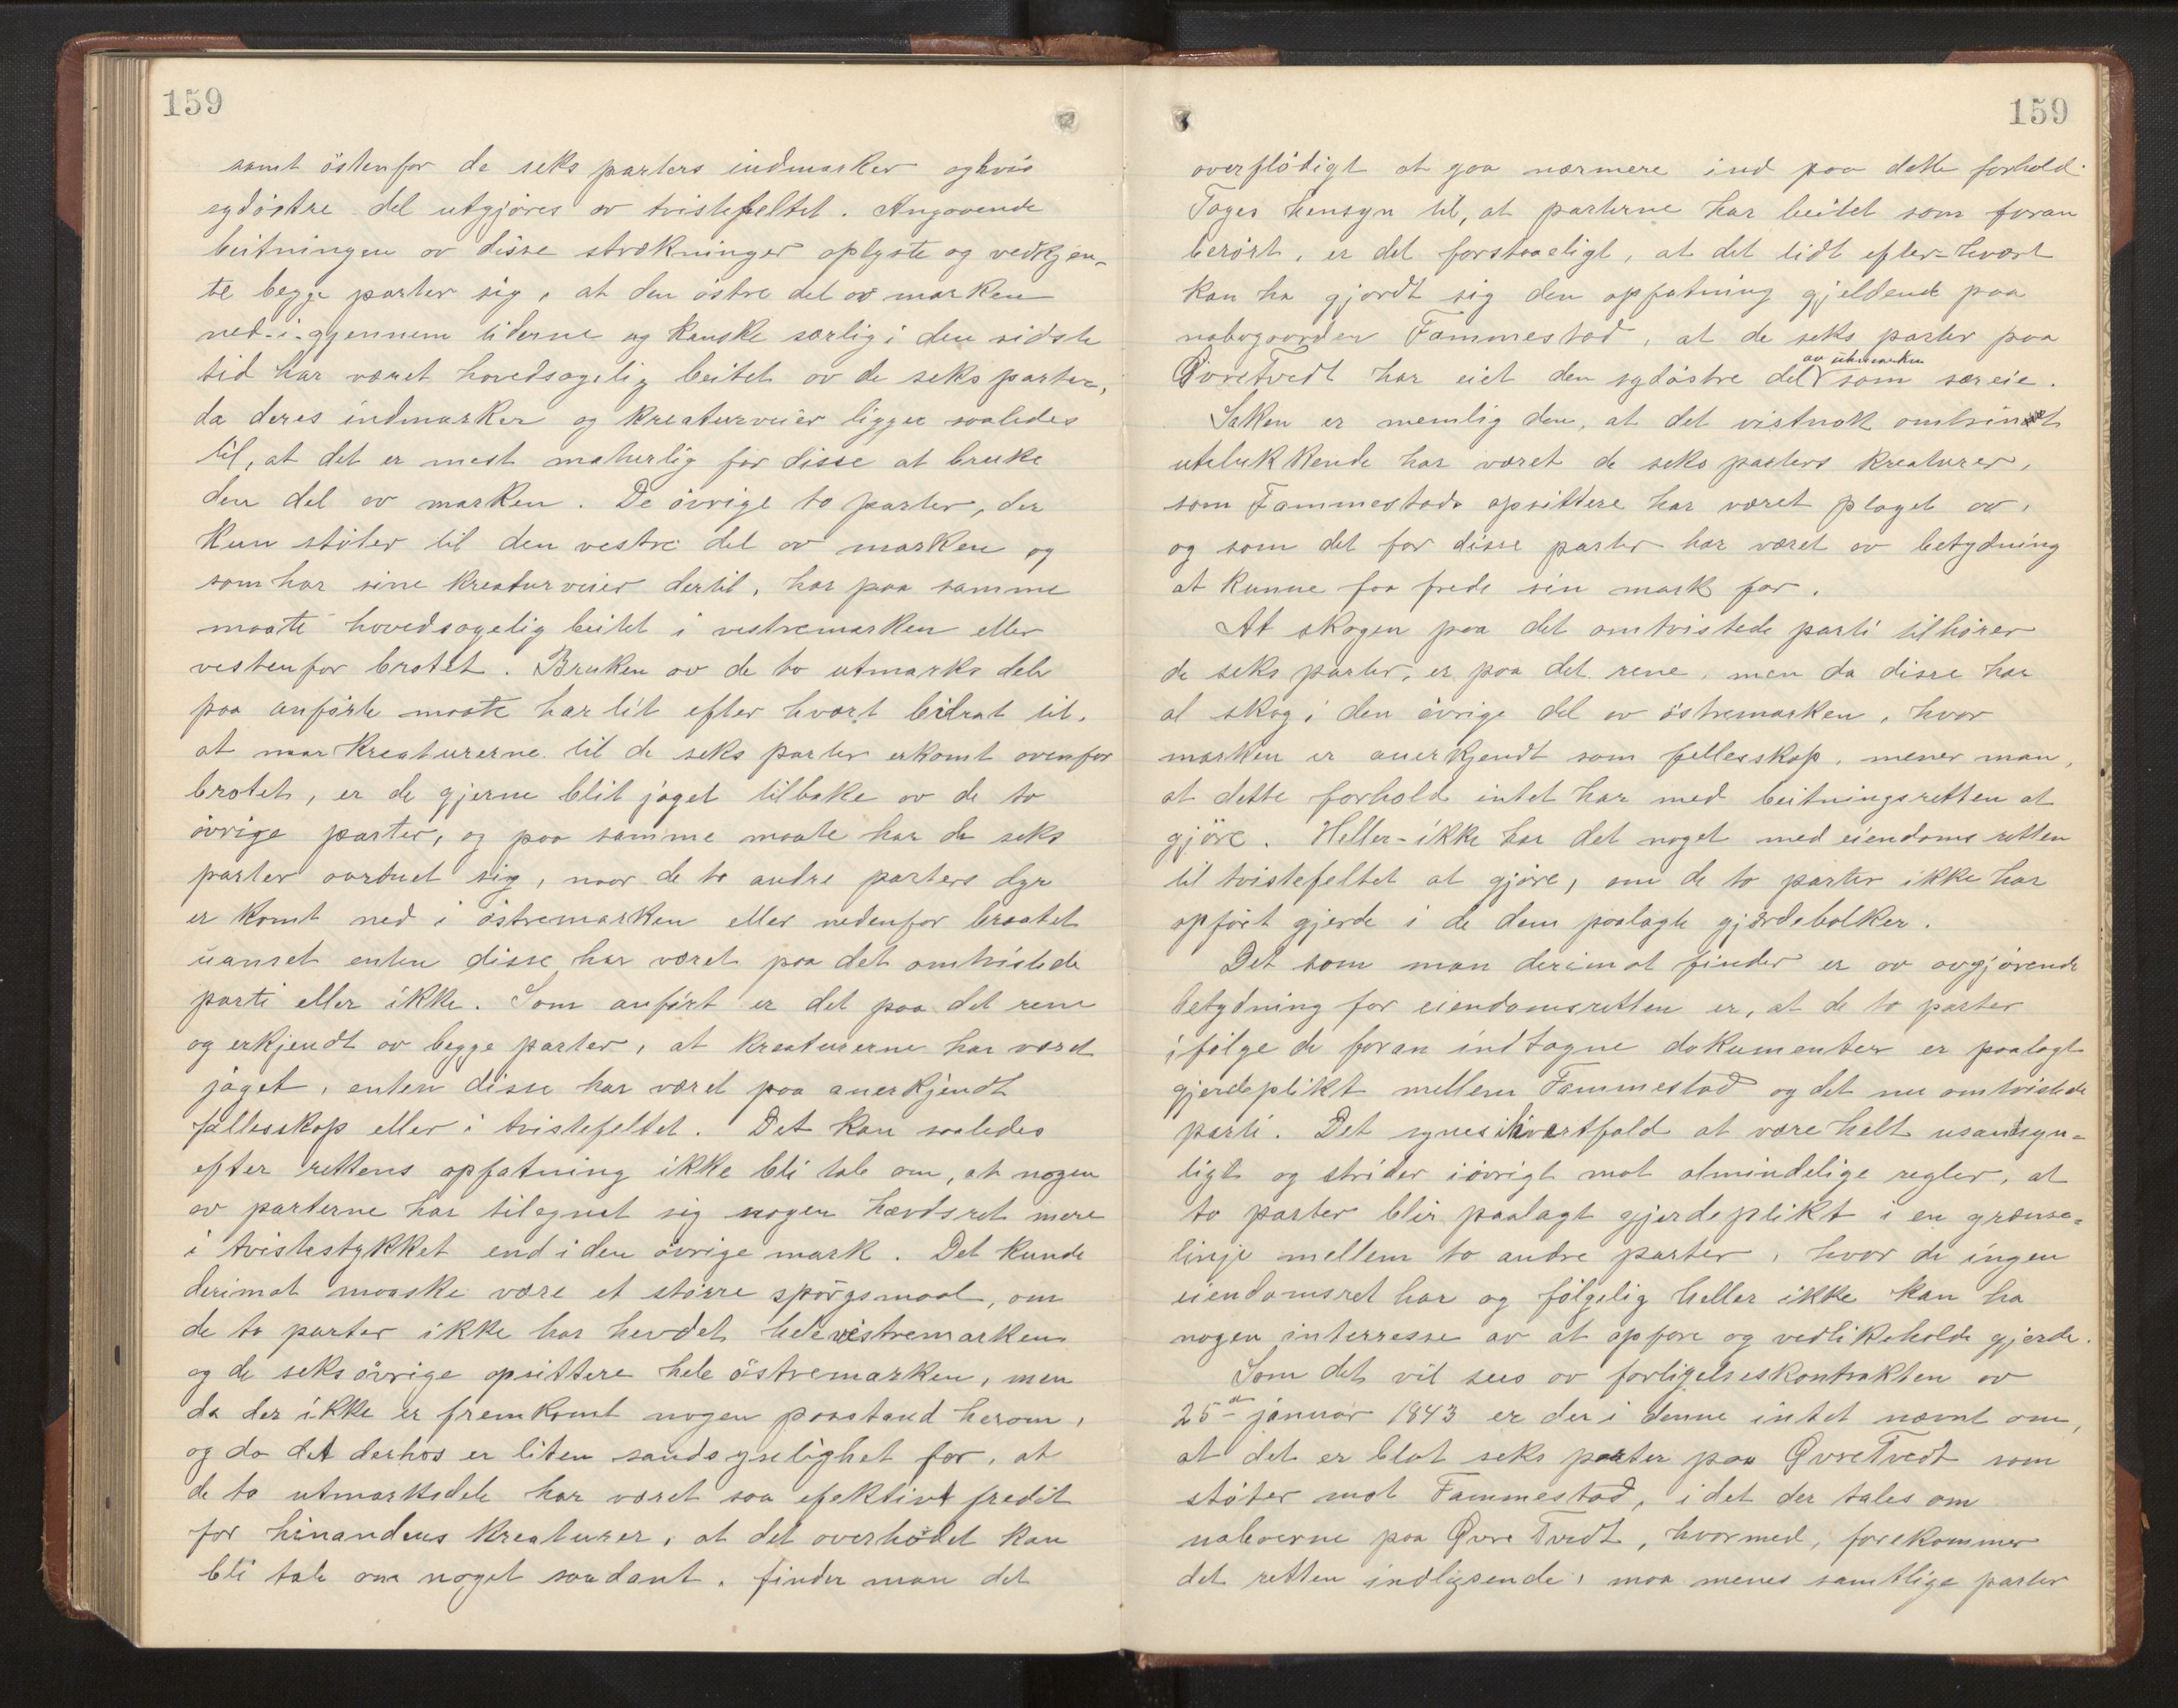 159
samt östenfor de seks parters indmarker og hvis
sydöstre del utgjöres av tvistefeltet. Angaaende
beitningen av disse strækninger oplyste og vedkjen-
te begge parter sig, at den östre del av marken
ned-i-gjennem tiderne og kanske særlig i den sidste
tid har været hovedsagelig beitet av de seks parter,
da deres indmarker og kreaturveier ligger saaledes
til, at det er mest naturlig for disse at bruke
den del av marken. De övrige to parter, der
kun stöter til den vestre del av marken og
som har sine kreaturveier dertil, har paa samme
maate hovedsagelig beitet i vestremarken eller
vestenfor brotet. Bruken av de to utmarks dele
paa anförte maate har lit efter hvært bidrat til,
at naar kreaturerne til de seks parter er komt ovenfor
brotet, er de gjerne blit jaget tilbake av de to
övrige parter, og paa samme maate har de seks
parter aartnet sig, naar de to andre parters dyr
er komt ned i östremarken eller nedenfor braatet
uanset enten disse har været paa det omtvistede
parti eller ikke. Som anfört er det paa det rene
og erkjendt av begge parter, at kreaturerne har været
jaget, enten disse har været paa anerkjendt
fællesskap eller i tvistefeltet. Det kan saaledes
efter rettens opfatning ikke bli tale om, at nogen
av parterne har tilegnet sig nogen hævdsret mere
i tvistestykket end i den övrige mark. Det kunde
derimot maaske være et större spörgsmaal, om
de to parter ikke har hevdet hele vestremarken
og de seks övrige opsittere hele östremarken, men
da der ikke er fremkomt nogen paastand herom,
og da det derhos er liten sandsynlighet for, at
de to utmarksdele har været saa efektivt fredit
for hinandens kreaturer, at det overhodet kan
bli tale om noget saadant, finder man det
159
overflödigt at gaa nærmere ind paa dette forhold.
Tages hensyn til, at parterne har beitet som foran
berört, er det forstaaeligt, at det lidt efter-hvært
kan ha gjordt sig den opfatning gjeldende paa
nabogaarden Fammestad, at de seks parter paa
av utmarken
Övretvedt har eiet den sydöstre del som særeie.
Saken er nemlig den, at det vistnok omtrint
utelukkende har været de seks parters kreaturer,
som Fammestads opsittere har været plaget av,
og som det for disse parter har været av betydning
at kunne faa frede sin mark for.
At skogen paa det omtvistede parti tilhörer
de seks parter, er paa det rene, men da disse har
al skog i den övrige del av östremarken, hvor
marken er anerkjendt som fellesskap, mener man,
at dette forhold intet har med beitningsretten at
gjöre. Heller-ikke har det noget med eiendoms retten
til tvistefeltet at gjöre, om de to parter ikke har
opfört gjerde i de dem paalagte gjærdebolker.
Det som man derimot finder er av avgjörende
betydning for eiendomsretten er, at de to parter
ifölge de foran indtagne dokumenter er paalagt
gjerdeplikt mellem Fammestad og det nu omtvistede
parti. Det synes ihvertfald at være helt usandsyn-
ligt og strider iövrigt mot almindelige regler, at
to parter blir paalagt gjerdeplikt i en grænse-
linje mellem to andre parter, hvor de ingen
eiendomsret har og fölgelig heller ikke kan ha
nogen interresse av at opföre og vedlikeholde gjerde.
Som det vil sees av forligelseskontrakten av
25de januar 1843 er der i denne intet nævnt om,
at det er blot seks parter paa Øvre Tvedt som
stöter mot Fammestad, idet der tales om
naboerne paa Øvre Tvedt, hvormed, forekommer
det retten indlysende, maa menes samtlige parter